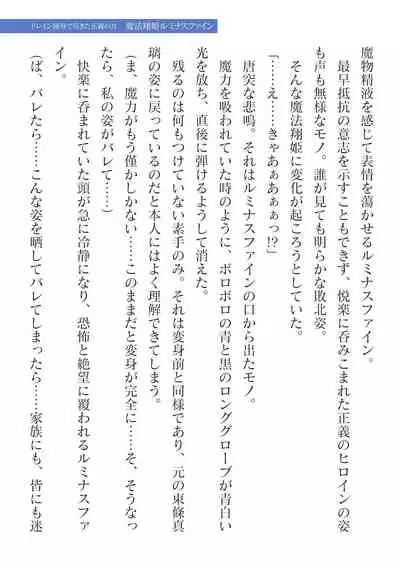 ドレイン陵辱で尽きた正義の刃　魔法翔姫ルミナスファイン
魔物精液を感じて表情を蕩かせるルミナスファイン。
最早抵抗の意志を示すこともできず、悦楽に呑みこまれた正義のヒロインの姿
も声も無様なモノ。誰が見ても明らかな敗北姿。
そんな魔法翔姫に変化が起ころうとしていた。
「……え……きゃあぁあぁぁっ!?」
唐突な悲鳴。それはルミナスファインの口から出たモノ。
魔力を吸われていた時のように、ボロボロの青と黒のロンググローブが青白い
光を放ち、直後に弾けるようにして消えた。
残るのは何もつけていない素手のみ。それは変身前と同様であり、元の東條真
璃の姿に戻っているのだと本人にはよく理解できてしまう。
（ま、魔力がもう僅かしかない……このままだと変身が完全に……そ、そうなっ
たら、私の姿がバレて……）
快楽に呑まれていた頭が急に冷静になり、恐怖と絶望に覆われるルミナスファ
イン。
（ば、バレたら……こんな姿を晒してバレてしまったら……家族にも、皆にも迷